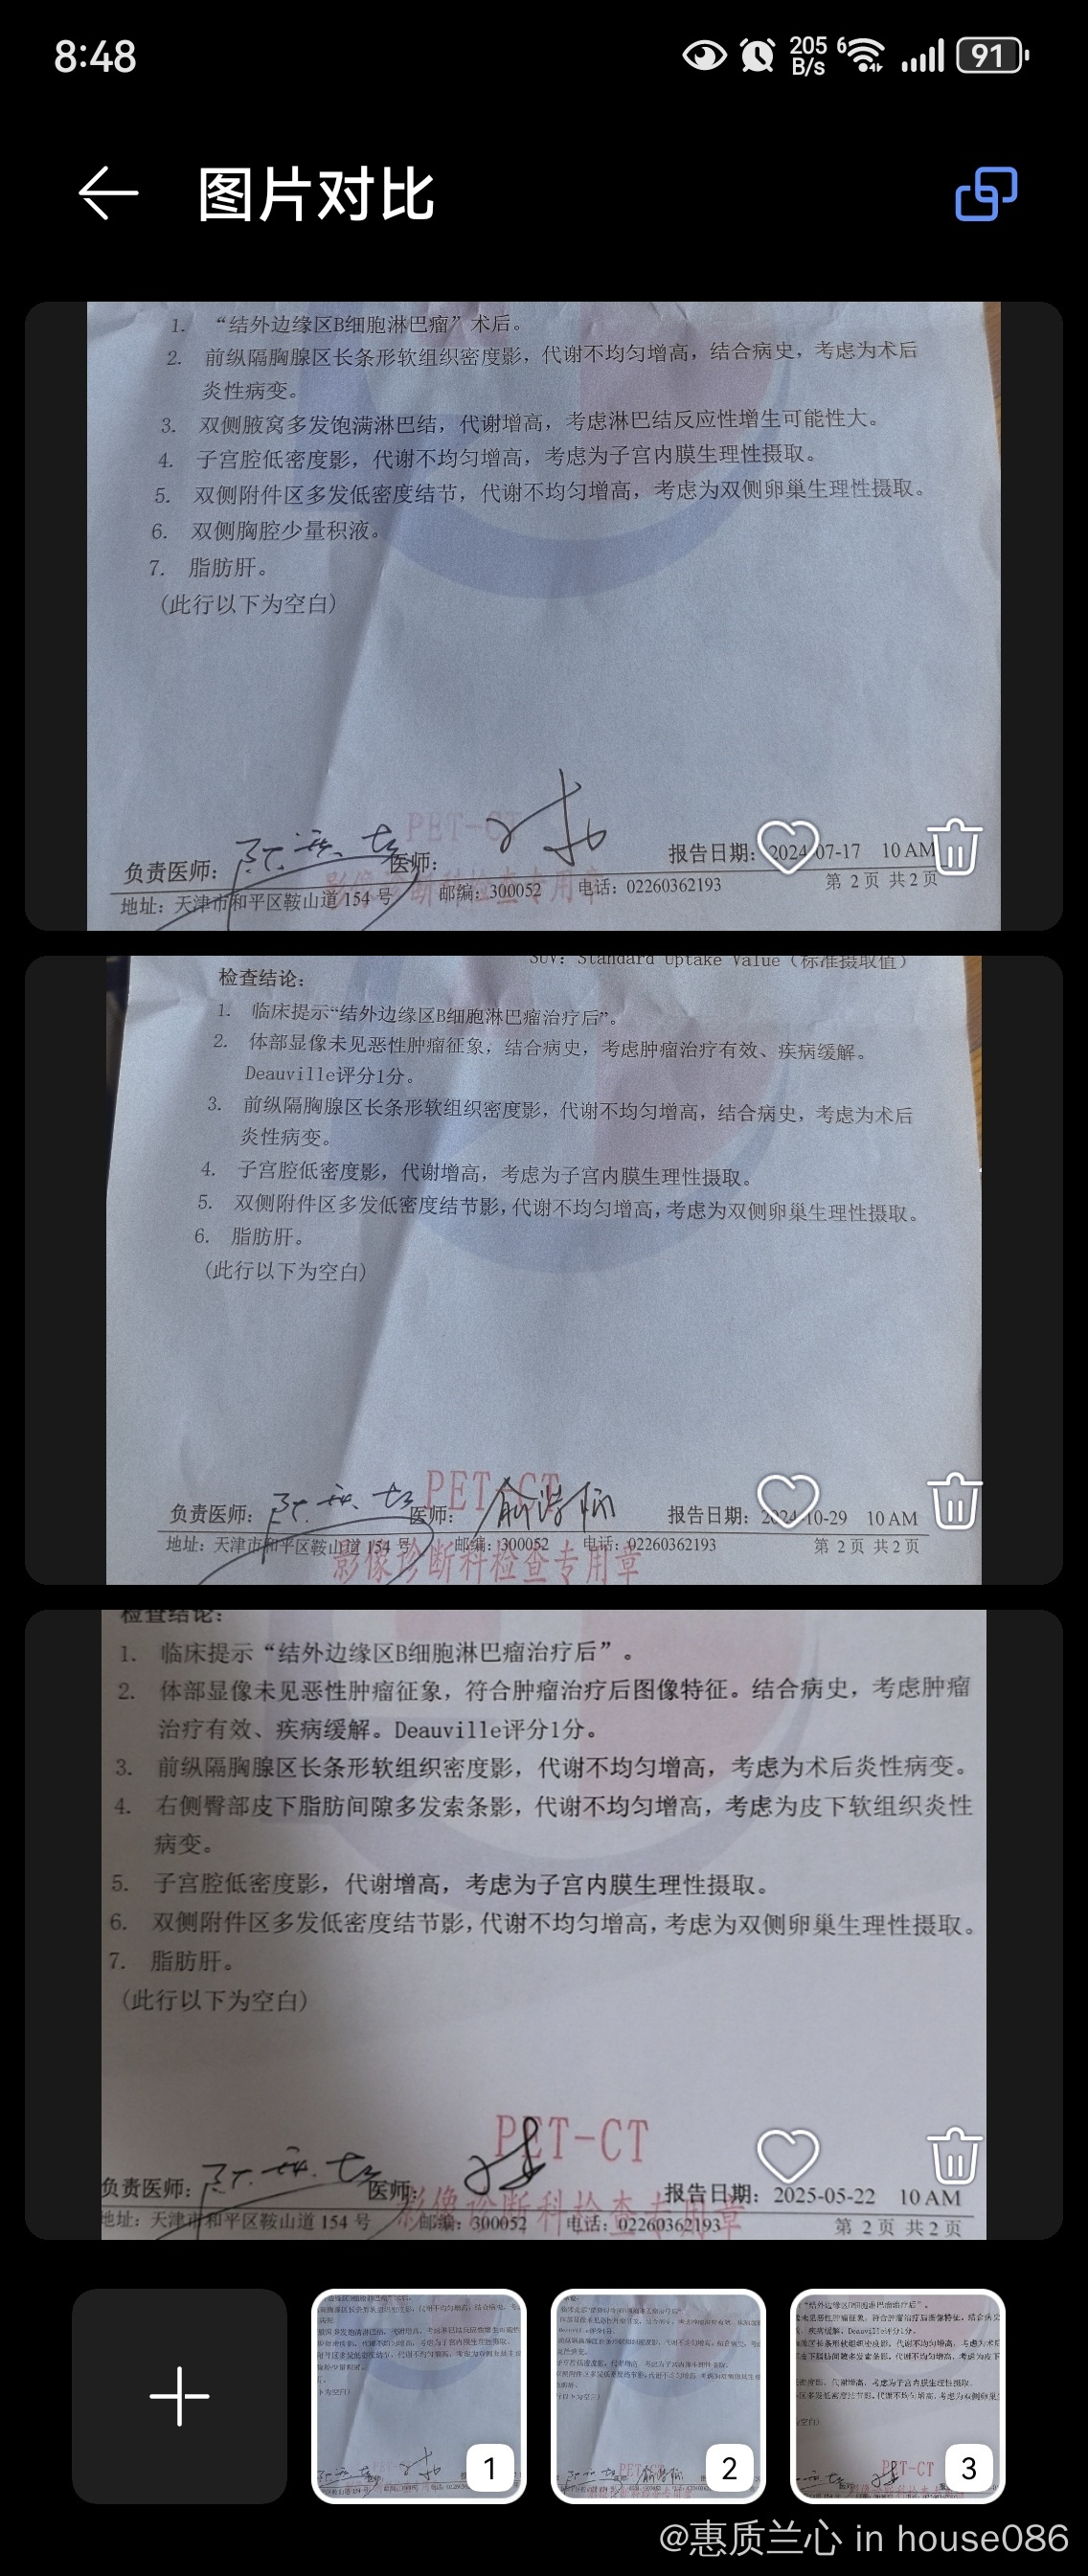 8:48
205 B/s
6
91
图片对比
1. “结外边缘区B细胞淋巴瘤”术后。
2. 前纵隔胸腺区长条形软组织密度影，代谢不均匀增高，结合病史，考虑为术后
炎性病变。
3. 双侧腋窝多发饱满淋巴结，代谢增高，考虑淋巴结反应性增生可能性大。
4. 子宫腔低密度影，代谢不均匀增高，考虑为子宫内膜生理性摄取。
5. 双侧附件区多发低密度结节，代谢不均匀增高，考虑为双侧卵巢生理性摄取。
6. 双侧胸腔少量积液。
7. 脂肪肝。
(此行以下为空白)
PET-CT
负责医师： 医师： 报告日期：2024-07-17 10 AM
影像诊断科检查专用章
地址：天津市和平区鞍山道 154 号 邮编：300052 电话：02260362193 第 2 页 共 2 页
SUV: Standard Uptake Value（标准摄取值）
检查结论：
1. 临床提示“结外边缘区B细胞淋巴瘤治疗后”。
2. 体部显像未见恶性肿瘤征象，结合病史，考虑肿瘤治疗有效、疾病缓解。
Deauville评分1分。
3. 前纵隔胸腺区长条形软组织密度影，代谢不均匀增高，结合病史，考虑为术后
炎性病变。
4. 子宫腔低密度影，代谢增高，考虑为子宫内膜生理性摄取。
5. 双侧附件区多发低密度结节影，代谢不均匀增高，考虑为双侧卵巢生理性摄取。
6. 脂肪肝。
(此行以下为空白)
PET-CT
负责医师： 医师： 报告日期：2024-10-29 10 AM
影像诊断科检查专用章
地址：天津市和平区鞍山道 154 号 邮编：300052 电话：02260362193 第 2 页 共 2 页
检查结论：
1. 临床提示“结外边缘区B细胞淋巴瘤治疗后”。
2. 体部显像未见恶性肿瘤征象，符合肿瘤治疗后图像特征。结合病史，考虑肿瘤
治疗有效、疾病缓解。Deauville评分1分。
3. 前纵隔胸腺区长条形软组织密度影，代谢不均匀增高，考虑为术后炎性病变。
4. 右侧臀部皮下脂肪间隙多发索条影，代谢不均匀增高，考虑为皮下软组织炎性
病变。
5. 子宫腔低密度影，代谢增高，考虑为子宫内膜生理性摄取。
6. 双侧附件区多发低密度结节影，代谢不均匀增高，考虑为双侧卵巢生理性摄取。
7. 脂肪肝。
(此行以下为空白)
PET-CT
负责医师： 医师： 报告日期：2025-05-22 10 AM
影像诊断科检查专用章
地址：天津市和平区鞍山道 154 号 邮编：300052 电话：02260362193 第 2 页 共 2 页
1
2
3
@惠质兰心 in house086